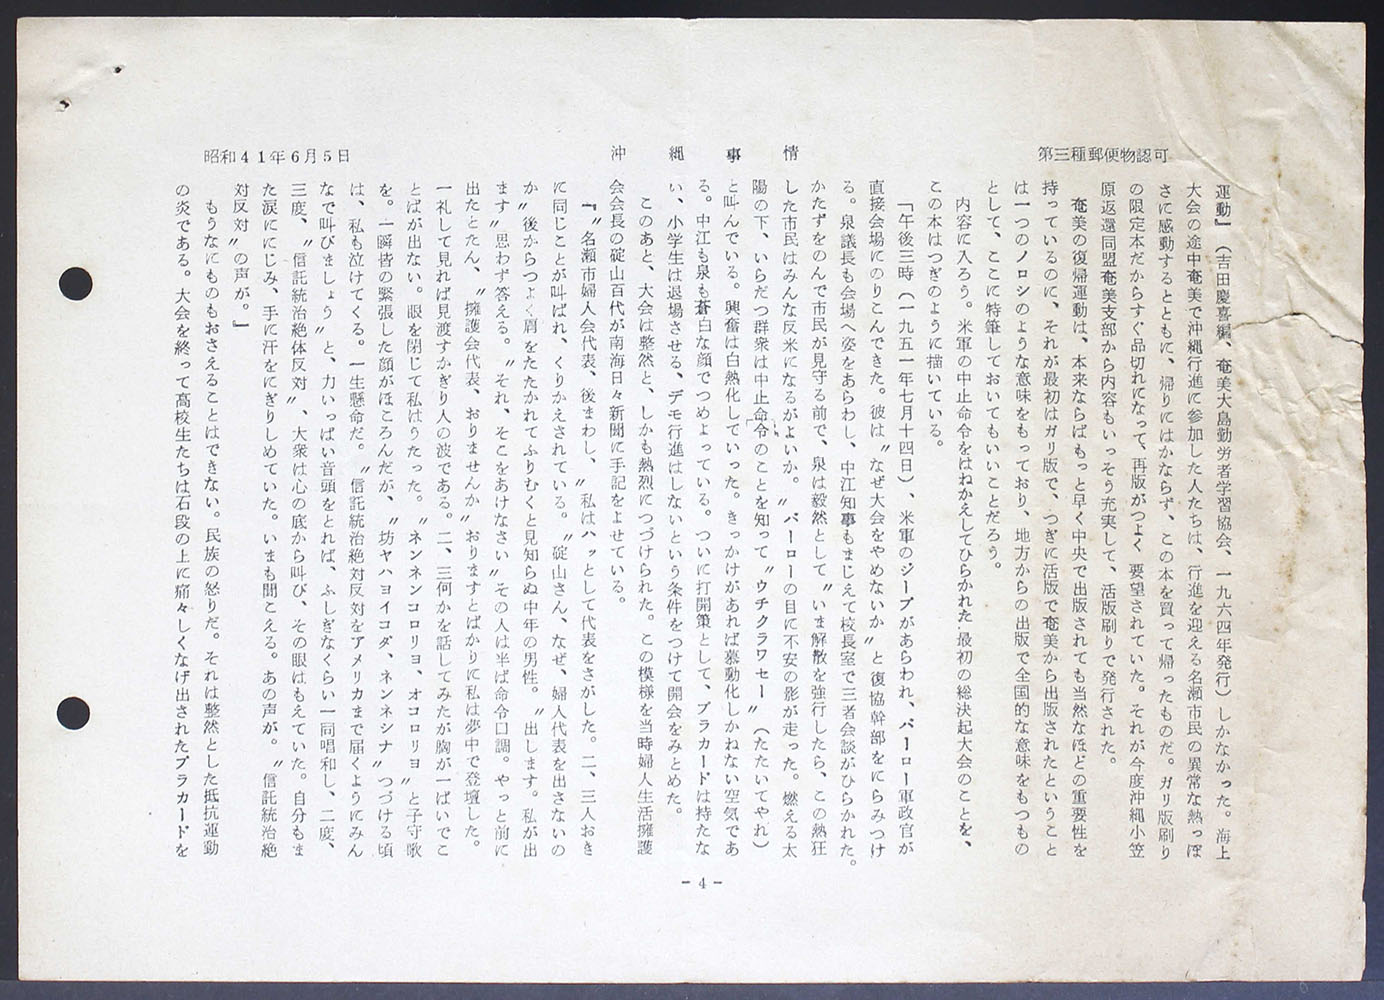 第三種郵便物認可
沖縄事情
昭和41年6月5日
運動』（吉田慶喜編、奄美大島勤労者学習協会、一九六四年発行）しかなかった。海上
大会の途中奄美で沖縄行進に参加した人たちは、行進を迎える名瀬市民の異常な熱っぽ
さに感動するとともに、帰りにはかならず、この本を買って帰ったものだ。ガリ版刷り
の限定本だからすぐ品切れになって、再版がつよく要望されていた。それが今度沖縄小笠
原返還同盟奄美支部から内容もいっそう充実して、活版刷りで発行された。
奄美の復帰運動は、本来ならばもっと早く中央で出版されても当然なほどの重要性を
持っているのに、それが最初はガリ版で、つぎに活版で奄美から出版されたということ
は一つのノロシのような意味をもっており、地方からの出版で全国的な意味をもつもの
として、ここに特筆しておいてもいいことだろう。
内容に入ろう。米軍の中止命令をはねかえしてひらかれた最初の総決起大会のことを、
この本はつぎのように描いている。
「午後三時（一九五一年七月十四日）、米軍のジープがあらわれ、バーロー軍政官が
直接会場にのりこんできた。彼は〝なぜ大会をやめないか〟と復協幹部をにらみつけ
る。泉議長も会場へ姿をあらわし、中江知事もまじえて校長室で三者会談がひらかれた。
かたずをのんで市民が見守る前で、泉は毅然として〝いま解散を強行したら、この熱狂
した市民はみんな反米になるがよいか。〟バーローの目に不安の影が走った。燃える太
陽の下、いらだつ群衆は中止命令のことを知って〝ウチクラワセー〟（たたいてやれ）
と叫んでいる。興奮は白熱化していった。きっかけがあれば暴動化しかねない空気であ
る。中江も泉も蒼白な顔でつめよっている。ついに打開策として、プラカードは持たな
い、小学生は退場させる、デモ行進はしないという条件をつけて開会をみとめた。
このあと、大会は整然と、しかも熱烈につづけられた。この模様を当時婦人生活擁護
会会長の碇山百代が南海日々新聞に手記をよせている。
『〝名瀬市婦人会代表、後まわし、〟私はハッとして代表をさがした。二、三人おき
に同じことが叫ばれ、くりかえされている。〝碇山さん、なぜ、婦人代表を出さないの
か〟後からつよく肩をたたかれてふりむくと見知らぬ中年の男性。〝出します。私が出
ます〟思わず答える。〝それ、そこをあけなさい〟その人は半ば命令口調。やっと前に
出たとたん、〝擁護会代表、おりませんか〟おりますとばかりに私は夢中で登壇した。
一礼して見れば見渡すかぎり人の波である。二、三何かを話してみたが胸が一ぱいでこ
とばが出ない。眼を閉じて私はうたった。〝ネンネンコロリヨ、オコロリヨ〟と子守歌
を。一瞬皆の緊張した顔がほころんだが、〝坊ヤハヨイコダ、ネンネシナ〟つづける頃
は、私も泣けてくる。一生懸命だ。〝信託統治絶対反対をアメリカまで届くようにみん
なで叫びましょう〟と、力いっぱい音頭をとれば、ふしぎなくらい一同唱和し、二度、
三度、〝信託統治絶体反対〟、大衆は心の底から叫び、その眼はもえていた。自分もま
た涙ににじみ、手に汗をにぎりしめていた。いまも聞こえる。あの声が。〝信託統治絶
対反対〟の声が。』
もうなにものもおさえることはできない。民族の怒りだ。それは整然とした抵抗運動
の炎である。大会を終って高校生たちは石段の上に痛々しくなげ出されたプラカードを
- 4 -